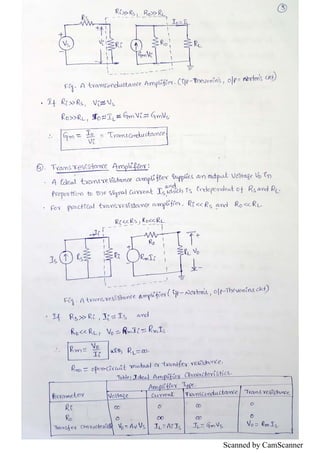 ③
Ri>>Rs, Ro>>RL
Rs
Io=IL
Vs
Vi
Ri
GmVi
Ro
RL
Fig. A transconductance Amplifier. (I/p-Thevenins, o/p= Nortons ckt)
• If Ri>>Rs, Vi≅Vs
Ro>>RL, Io≅IL≅GmVi≅GmVs
∴ Gm = Io/Vi = Transconductance
Transresistance Amplifier:
• A Ideal transresistance amplifier supplies an output voltage Vo in
proportion to the signal current Is and which is independent of Rs and RL.
• For practical transresistance amplifier, Ri<<Rs and Ro<<RL.
Ri<<Rs, Ro<<RL
Ii
Ro
Is
Rs
Ri
RmIi
RL
Vo
Fig. A transresistance amplifier (I/p-Nortons, o/p-Thevenins ckt)
• If Rs>>Ri, Ii≅Is and
Ro<<RL, Vo≅RmIi≅RmIs
∴ Rm = Vo/Ii with RL=∞.
Rm = open circuit mutual or transfer resistance.
Table: Ideal Amplifier Characteristics.
Amplifier Type.
Parameter Voltage Current Transconductance Transresistance
Ri ∞ 0 ∞ 0
Ro 0 ∞ ∞ 0
Transfer characteristic Vo=AvVs IL=AIIs IL=GmVs Vo=RmIs
Scanned by CamScanner